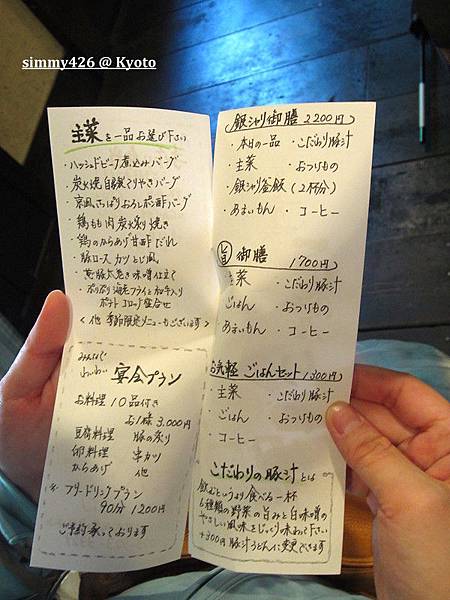 simmy426 @ Kyoto
主菜を一品お選び下さい
・ハッシュドビーフ煮込みバーグ
・炭火焼自家製てりやきバーグ
・京風さっぱりおろしポン酢バーグ
・鶏もも肉炭火炙り焼き
・鶏のからあげ甘酢だれ
・豚ロースカツとじ風
・ぷりぷり海老フライと
ポテトコロッケ盛合せ
<他 季節限定メニューもございます>
みんなで
わいわい 宴会プラン
お料理 10品付き
お1人様 3,000円
豆腐料理 豚の炙り
卵料理 串カツ
からあげ 他
フリードリンクプラン
90分 1200円
ご予約承っております
銀シャリ御膳 2200円
・本日の一品 ・こだわり豚汁
・主菜 ・おつけもの
・銀シャリ釜飯(2杯分)
・あまいもん ・コーヒー
旨 御膳 1700円
・主菜 ・こだわり豚汁
・ごはん ・おつけもの
・あまいもん ・コーヒー
お気軽 ごはんセット 1300円
・主菜 ・こだわり豚汁
・ごはん ・おつけもの
・コーヒー
こだわりの豚汁とは
飲むというより食べる一杯
6種類の野菜の旨みと白味噌の
やさしい風味をじっくり味わって下さい
+300円 豚汁うどんに変更できます